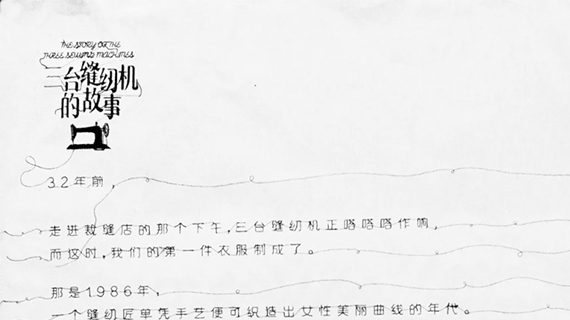 THE STORY OF THE
THREE SEWING MACHINES
三台缝纫机
的故事
32年前，
走进裁缝店的那个下午，三台缝纫机正嗒嗒嗒作响，
而这时，我们的第一件衣服制成了。
那是1986年，
一个缝纫匠单凭手艺便可织造出女性美丽曲线的年代。